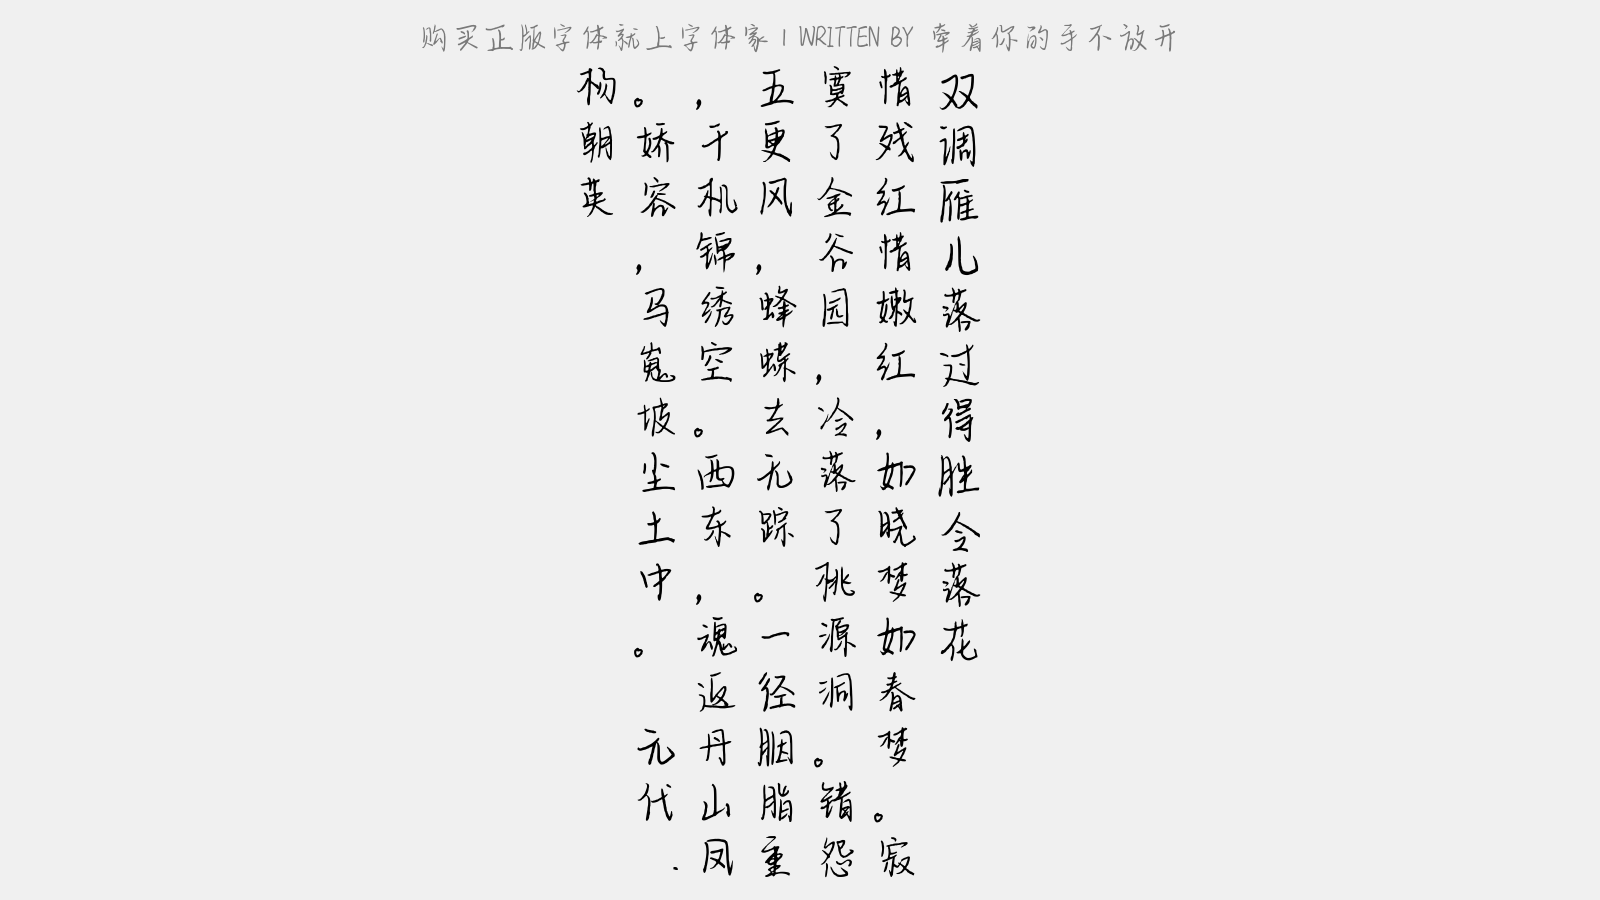 购买正版字体就上字体家 | WRITTEN BY 牵着你的手不放开
双调雁儿落过得胜令落花
惜残红惜嫩红，如晓梦如春梦。寂
寞了金谷园，冷落了桃源洞。错怨
五更风，蜂蝶去无踪。一径胭脂重
，千机锦绣空。西东，魂返丹山凤
。娇容，马嵬坡尘土中。 元代·
杨朝英